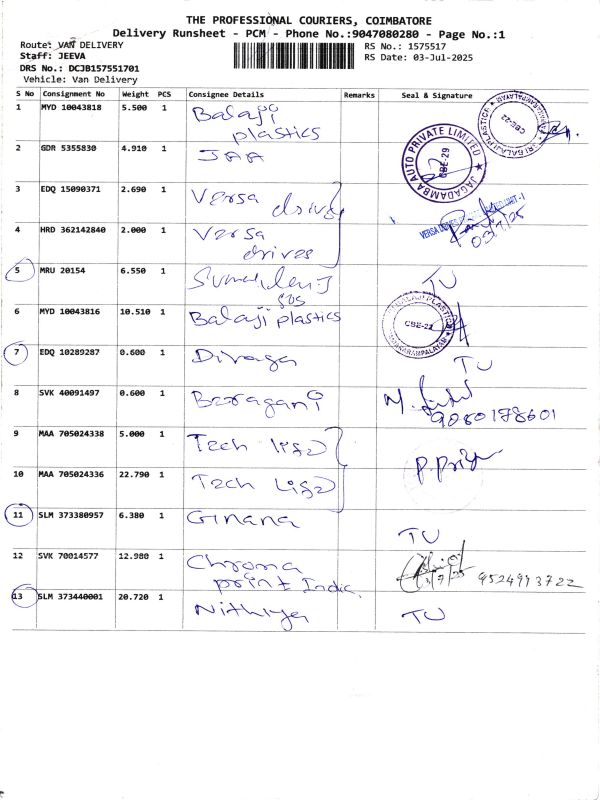 THE PROFESSIONAL COURIERS, COIMBATORE
Delivery Runsheet - PCM - Phone No.:9047080280 - Page No.:1
Route: VAN DELIVERY
RS No.: 1575517
Staff: JEEVA
RS Date: 03-Jul-2025
DRS No.: DCJB157551701
Vehicle: Van Delivery
S No Consignment No Weight PCS Consignee Details Remarks Seal & Signature
1 MYD 10043818 5.500 1 Balaji
plastics
CBE-22
2 GDR 5355830 4.910 1 JAA
JAGADAMBA AUTO PRIVATE LIMITED
CBE-29
3 EDQ 15090371 2.690 1 Versa drives
03/7/25
4 HRD 362142840 2.000 1 Versa
drives
5 MRU 20154 6.550 1 TU
6 MYD 10043816 10.510 1 Balaji plastics
CBE-22
7 EDQ 10289287 0.600 1 Divaga TU
8 SVK 40091497 0.600 1
9080178601
9 MAA 705024338 5.000 1 Tech
P. Priya
10 MAA 705024336 22.790 1 Tech
11 SLM 373380957 6.380 1 Gnana TU
12 SVK 70014577 12.980 1 Chroma
print India.
3/7/25 9524993722
13 SLM 373440001 20.720 1 Nithya TU